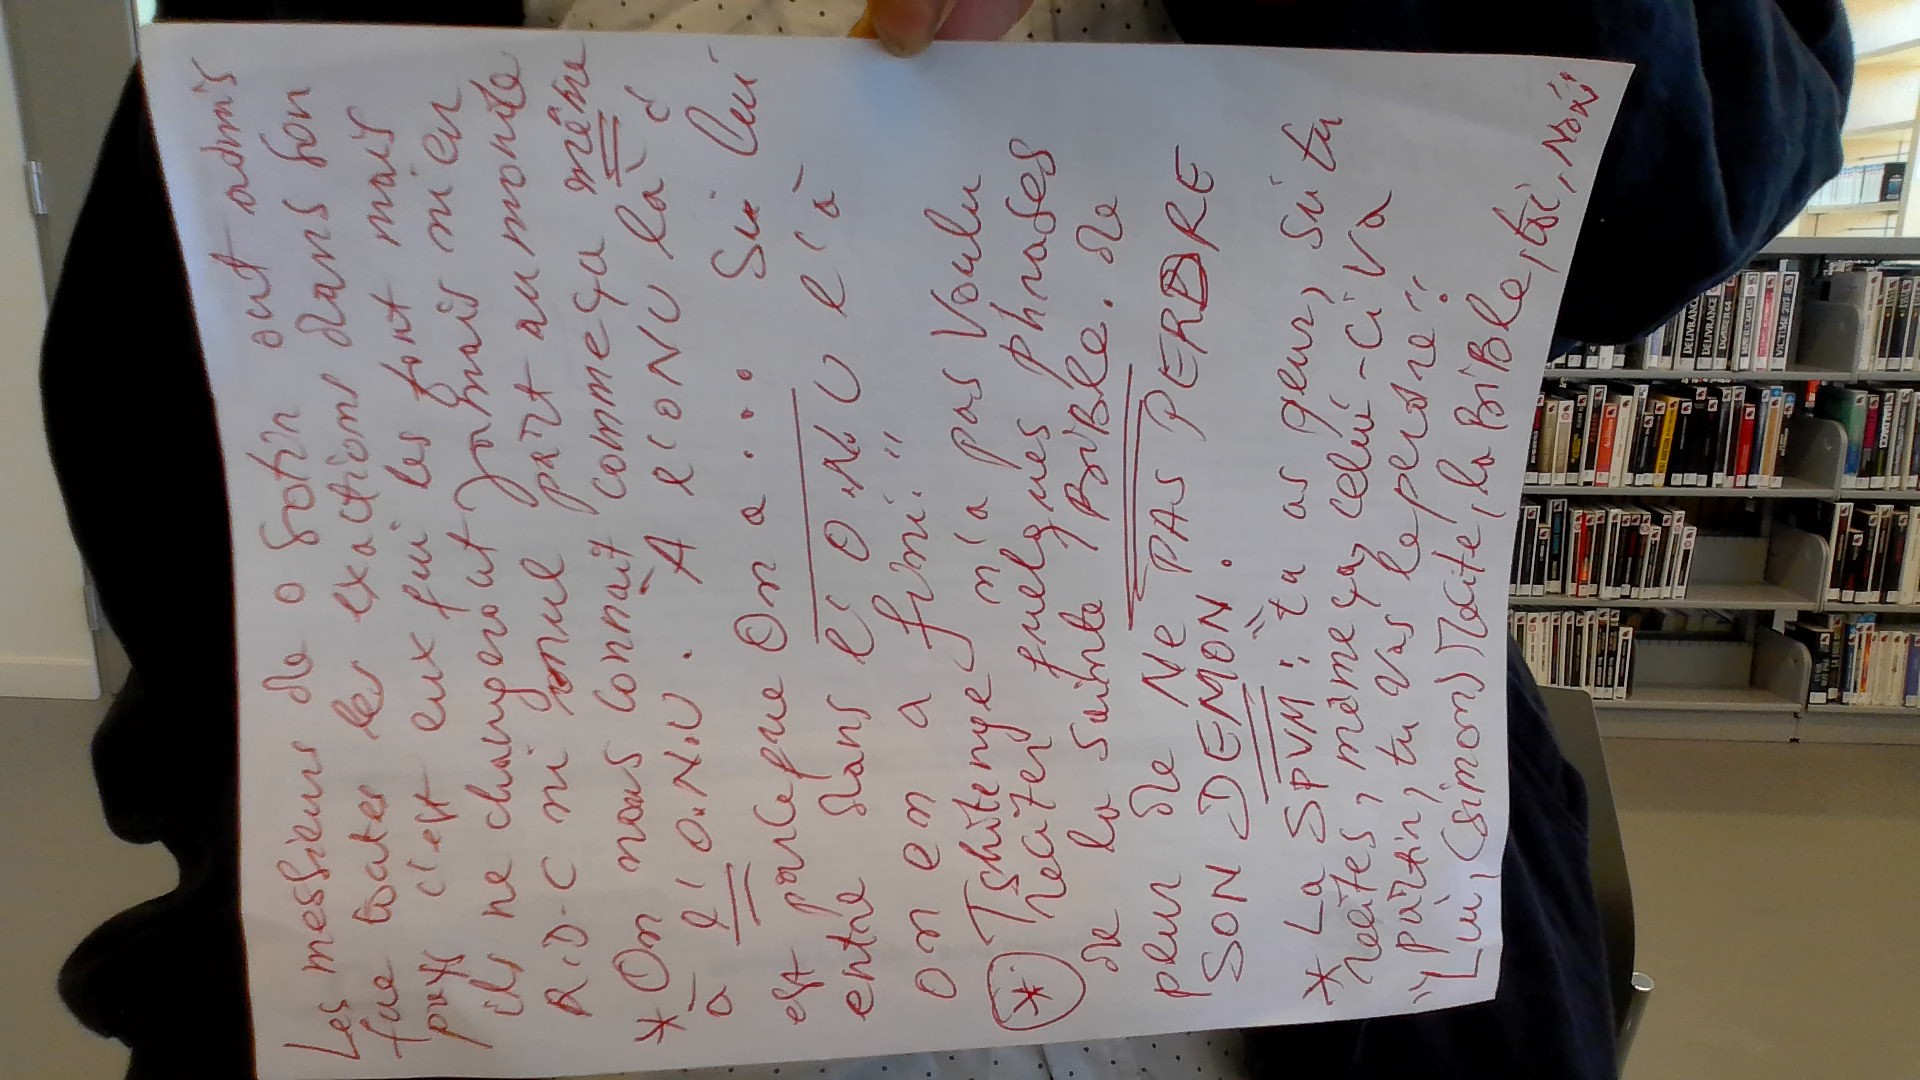 Les messieurs de o Sotin ont admis
que toutes les exactions dans son
pays c'est eux qui les font mais
ils ne changeront jamais ni en
R.D.C ni nul part au monde
* On nous connait comme ça même
à l'O.N.U. A l'ONU là c
est parceque On a.... Si lui
entre dans l'O.N.U l'à
on en a fini."
* Tshitenge n'a pas voulu
réciter quelques phrases
de la sainte BiBle. de
peur de Ne PAS PERDRE
SON DEMON.
* La SPVM: "t'a as peur, si tu
récites, même ça, celui-ci va
"partir, tu vas le perdre".
Lui, (simon) récite, la BiBle, toi, Non;